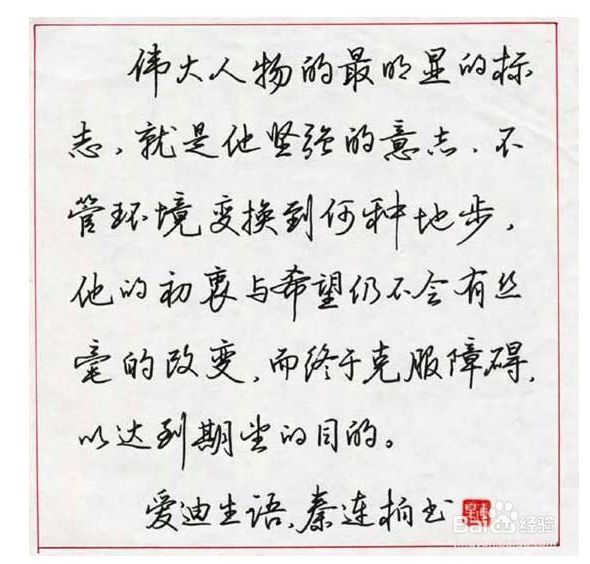 伟大人物的最明显的标
志，就是他坚强的意志，不
管环境变换到何种地步，
他的初衷与希望仍不会有丝
毫的改变，而终于克服障碍，
以达到期望的目的。
爱迪生语，秦连柏书
Baidu经验
jingyan.baidu.com